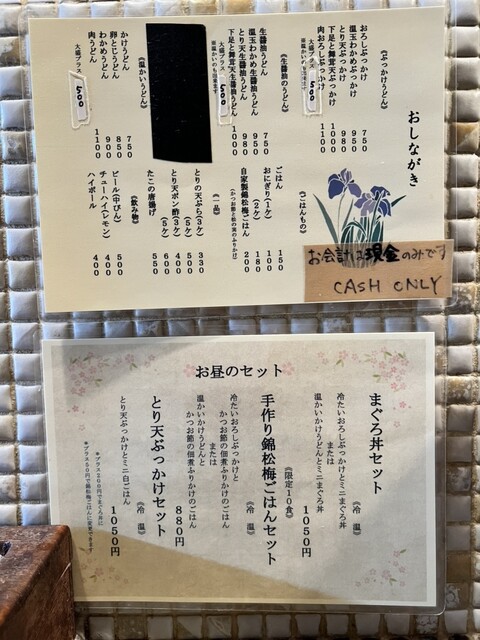 おしながき
《ぶっかけうどん》
おろしぶっかけ 750
温玉わかめぶっかけ 950
とり天ぶっかけ 980
下足と舞茸天ぶっかけ 1000
肉おろしぶっかけ 1100
大盛プラス 500
《生醤油のうどん》
生醤油うどん 750
温玉わかめ生醤油うどん 950
とり天生醤油うどん 980
下足と舞茸天生醤油うどん 1000
大盛プラス 500
《温かいうどん》
かけうどん 750
卵とじうどん 850
わかめうどん 900
肉うどん 1100
大盛プラス 500
《ごはんもの》
ごはん 150
おにぎり(1ケ) 100
(2ケ) 180
自家製錦松梅ごはん 200
(かつお節と松の実のふりかけ)
《一品》
とりの天ぷら(3ケ) 330
(5ケ) 500
とり天ポン酢(3ケ) 400
(5ケ) 600
たこの唐揚げ 550
《飲み物》
ビール(中びん) 500
チューハイ(レモン) 400
ハイボール 400
お会計は現金のみです
CASH ONLY
お昼のセット
まぐろ丼セット
《冷 温》
冷たいおろしぶっかけとミニまぐろ丼
または
温かいかけうどんとミニまぐろ丼
1050円
《限定10食》
手作り錦松梅ごはんセット
《冷 温》
冷たいおろしぶっかけと
かつお節の佃煮ふりかけのごはん
または
温かいかけうどんと
かつお節の佃煮ふりかけのごはん
880円
とり天ぶっかけセット
《冷 温》
とり天ぶっかけとミニ白ごはん
1050円
*プラス200円でまぐろ丼に
*プラス50円で錦松梅ごはんに変更できます